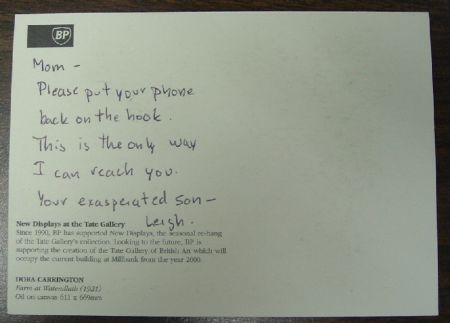 BP
Mom –
Please put your phone
back on the hook.
This is the only way
I can reach you.
Your exasperated son –
Leigh.
New Displays at the Tate Gallery
Since 1990, BP has supported New Displays, the seasonal re-hang
of the Tate Gallery's collection. Looking to the future, BP is
supporting the creation of the Tate Gallery of British Art which will
occupy the current building at Millbank from the year 2000.
DORA CARRINGTON
Farm at Watendlath (1921)
Oil on canvas 611 x 669mm